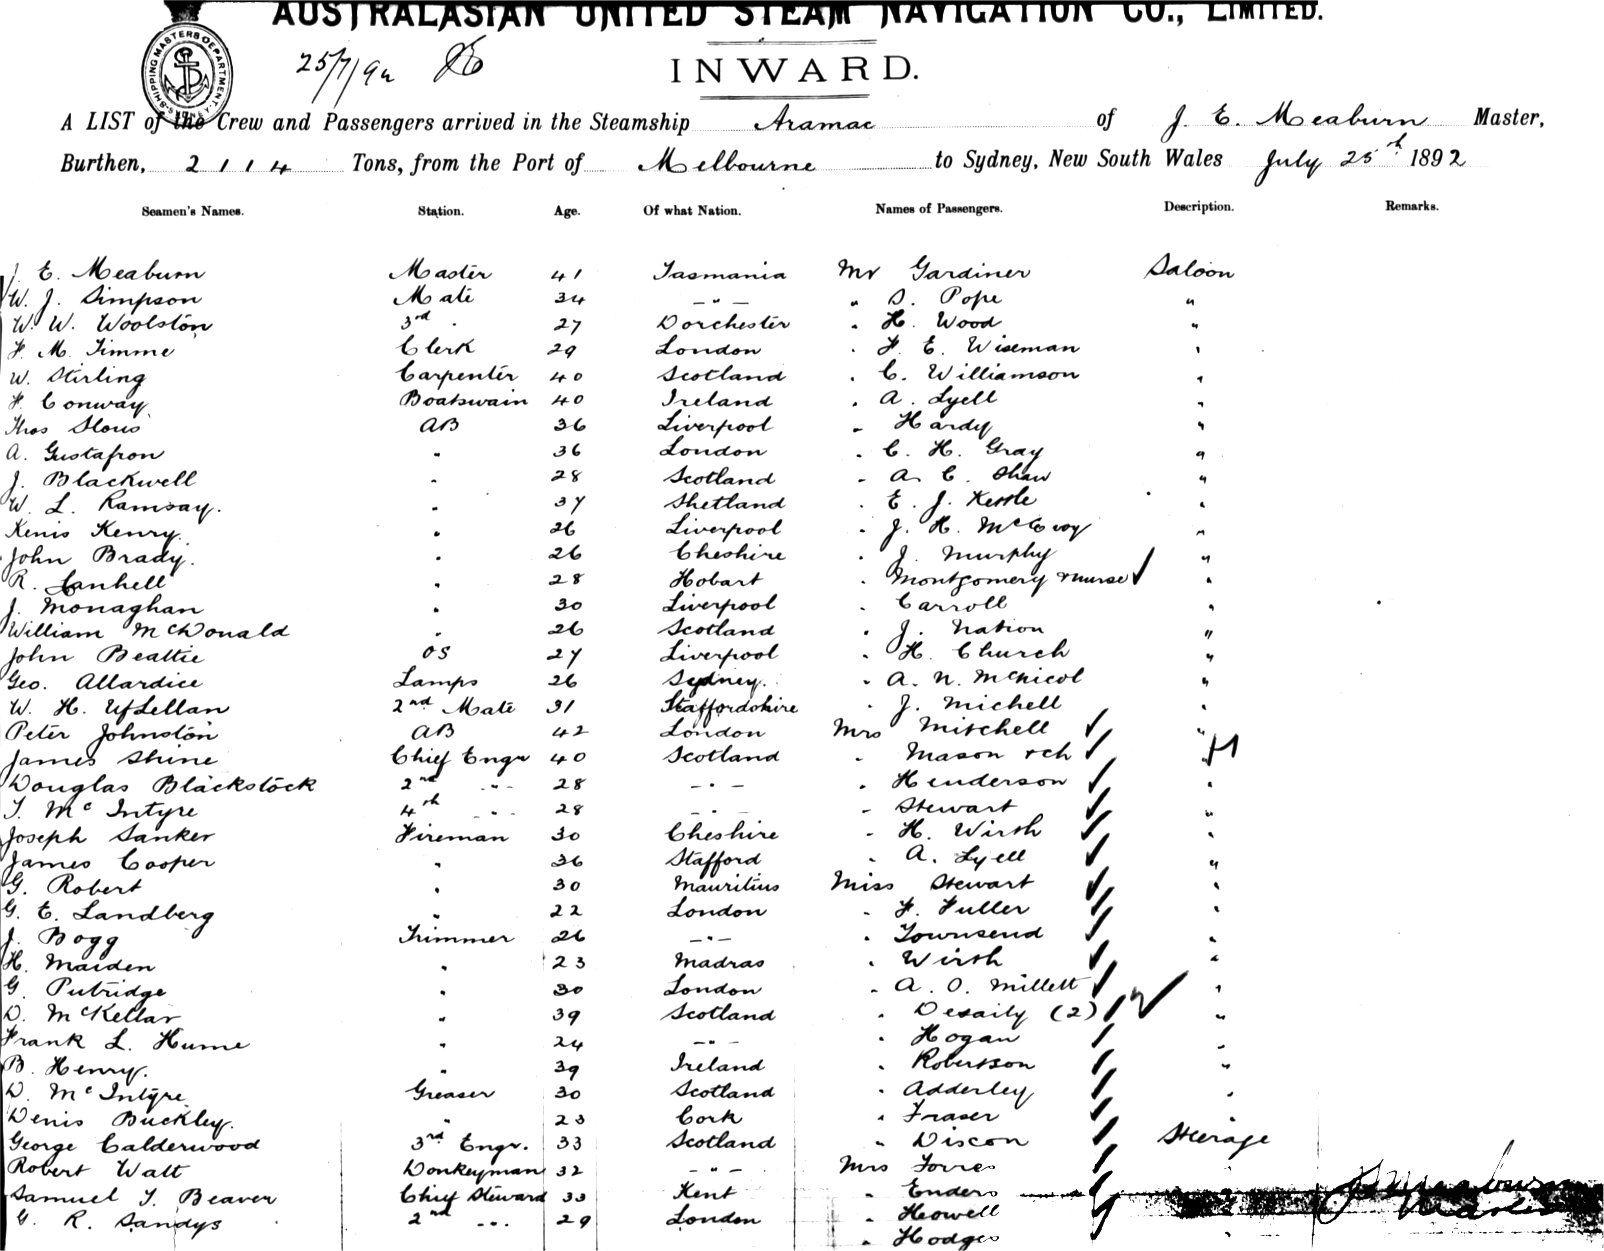 AUSTRALASIAN UNITED STEAM NAVIGATION CO., LIMITED.
SHIPPING MASTERS DEPARTMENT
25/7/92
INWARD.
A LIST of the Crew and Passengers arrived in the Steamship Aramac of J. E. Meaburn Master,
Burthen, 2114 Tons, from the Port of Melbourne to Sydney, New South Wales July 25th 1892
Seamen's Names. Station. Age. Of what Nation. Names of Passengers. Description. Remarks.
J. E. Meaburn Master 41 Tasmania Mr Gardiner Saloon
W. J. Simpson Mate 34 - " - " S. Pope "
W. W. Woolston 3rd " 27 Dorchester " H. Wood "
F. M. Timme Clerk 29 London " F. E. Wiseman "
W. Stirling Carpenter 40 Scotland " C. Williamson "
F. Conway Boatswain 40 Ireland " A. Lyell "
Thos AB 36 Liverpool " Hardy "
A. Gustafson " 36 London " C. H. Gray "
J. Blackwell " 28 Scotland " A. C. Shaw "
W. L. Ramsay. " 37 Shetland " E. J. Kettle "
Kenis Kenry. " 26 Liverpool " J. H. McEvoy "
John Brady. " 26 Cheshire " J. Murphy "
R. Canhell " 28 Hobart " Montgomery & nurse "
J. Monaghan " 30 Liverpool " Carroll "
William McDonald " 26 Scotland " J. Nation "
John Beattie OS 27 Liverpool " H. Church "
Geo. Allardice Lamps 26 Sydney. " A. N. McNicol "
W. H. 2nd Mate 31 Staffordshire " J. Michell "
Peter Johnston AB 42 London Mrs Mitchell "
James Shine Chief Engr 40 Scotland " Mason & ch "
Douglas Blackstock 2nd - " - 28 - " - " Henderson "
T. McIntyre 4th - " - 28 - " - " Stewart "
Joseph Sanker Fireman 30 Cheshire " H. Wirth "
James Cooper " 36 Stafford " A. Lyell "
G. Robert " 30 Mauritius Miss Stewart "
G. E. Landberg " 22 London " F. Fuller "
J. Bogg Trimmer 26 - " - " Townsend "
H. Maiden " 23 Madras " Wirth "
G. Putridge " 30 London " A. O. Millett "
D. McKellar " 39 Scotland " Desaily (2) "
Frank L. Hume " 24 - " - " Hogan "
B. Henry. " 39 Ireland " Robertson "
D. McIntyre Greaser 30 Scotland " Adderley "
Denis Buckley. " 23 Cork " Fraser "
George Calderwood 3rd Engr. 33 Scotland " Discon Steerage
Robert Watt Donkeyman 32 - " - Mrs Torres
Samuel T. Beaver Chief Steward 33 Kent " Enders J E Meaburn
G. R. Sandys 2nd - " - 29 London " Howell Master
" Hodges